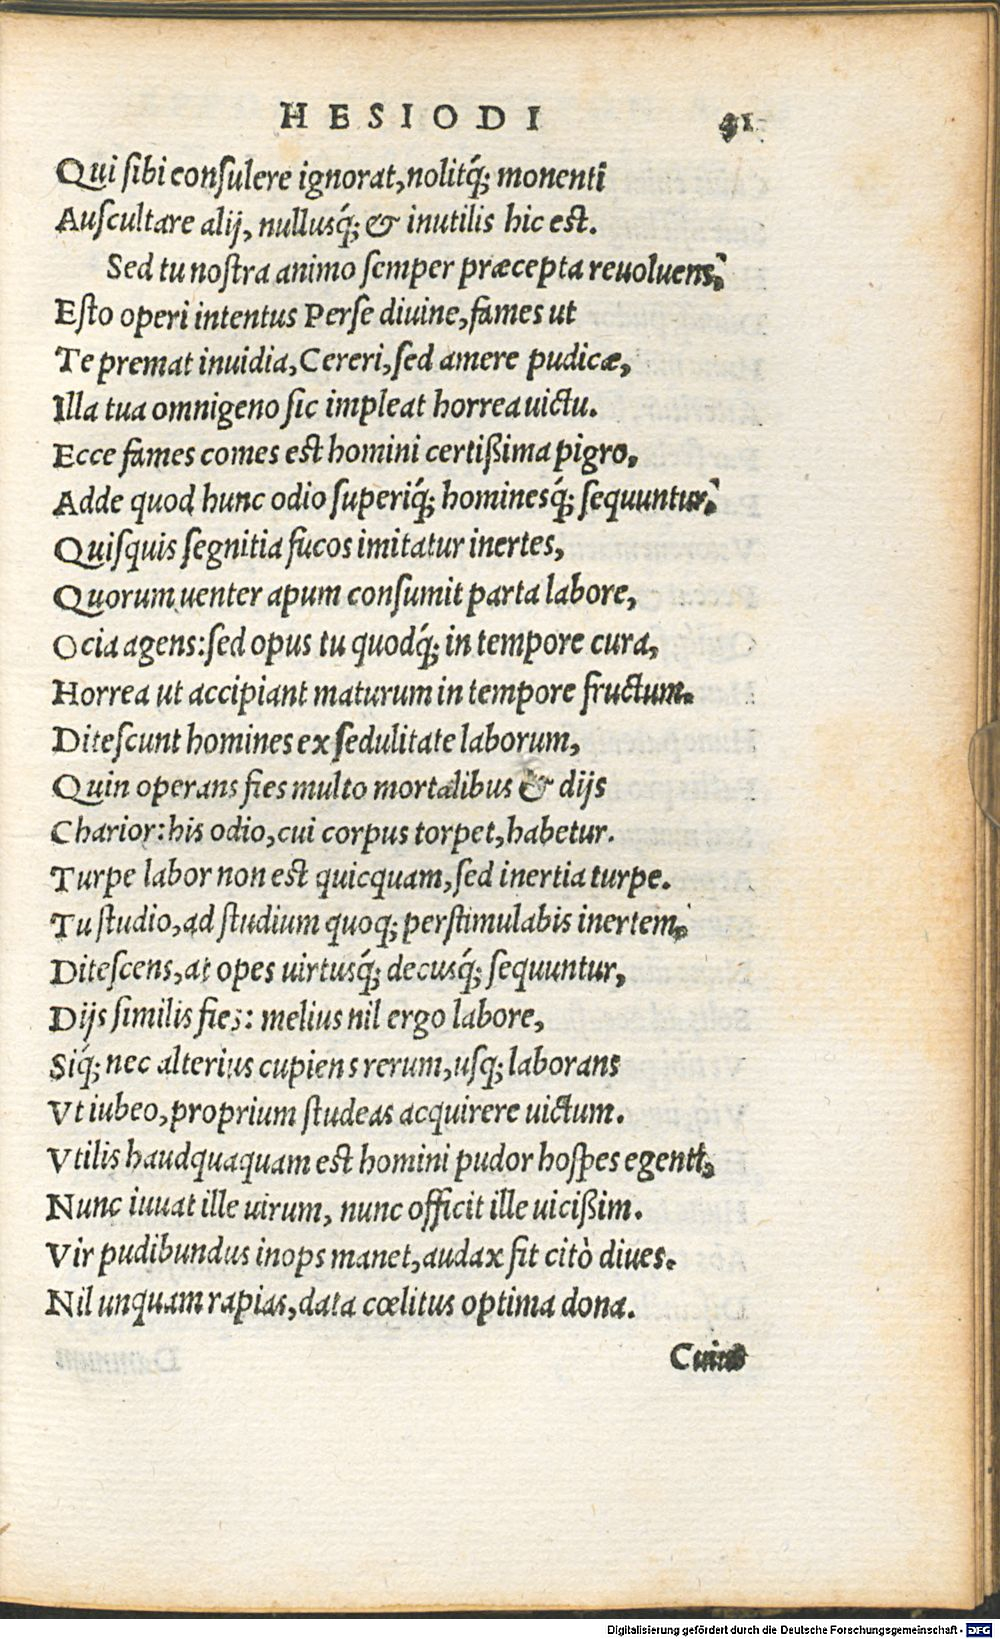 HESIODI 41
Qui ſibi conſulere ignorat, nolitq́; monenti
Auſcultare alij, nullusq́; & inutilis hic est.
Sed tu noſtra animo ſemper præcepta reuoluens,
Eſto operi intentus Perſe diuine, fames ut
Te premat inuidia, Cereri, ſed amere pudicæ,
Illa tua omnigeno ſic impleat horrea uictu.
Ecce fames comes est homini certißima pigro,
Adde quod hunc odio ſuperiq́; hominesq́; ſequuntur,
Quiſquis ſegnitia fucos imitatur inertes,
Quorum uenter apum conſumit parta labore,
Ocia agens: ſed opus tu quodq́; in tempore cura,
Horrea ut accipiant maturum in tempore fructum.
Diteſcunt homines ex ſedulitate laborum,
Quin operans fies multo mortalibus & dijs
Charior: his odio, cui corpus torpet, habetur.
Turpe labor non est quicquam, ſed inertia turpe.
Tu ſtudio, ad ſtudium quoq; perſtimulabis inertem,
Diteſcens, at opes uirtusq́; decusq́; ſequuntur,
Dijs ſimilis fies: melius nil ergo labore,
Siq́; nec alterius cupiens rerum, uſq; laborans
Vt iubeo, proprium ſtudeas acquirere uictum.
Vtilis haudquaquam est homini pudor hoſpes egenti,
Nunc iuuat ille uirum, nunc officit ille uicißim.
Vir pudibundus inops manet, audax fit citò diues.
Nil unquam rapias, data cœlitus optima dona.
Cuius
Digitalisierung gefördert durch die Deutsche Forschungsgemeinschaft - DFG